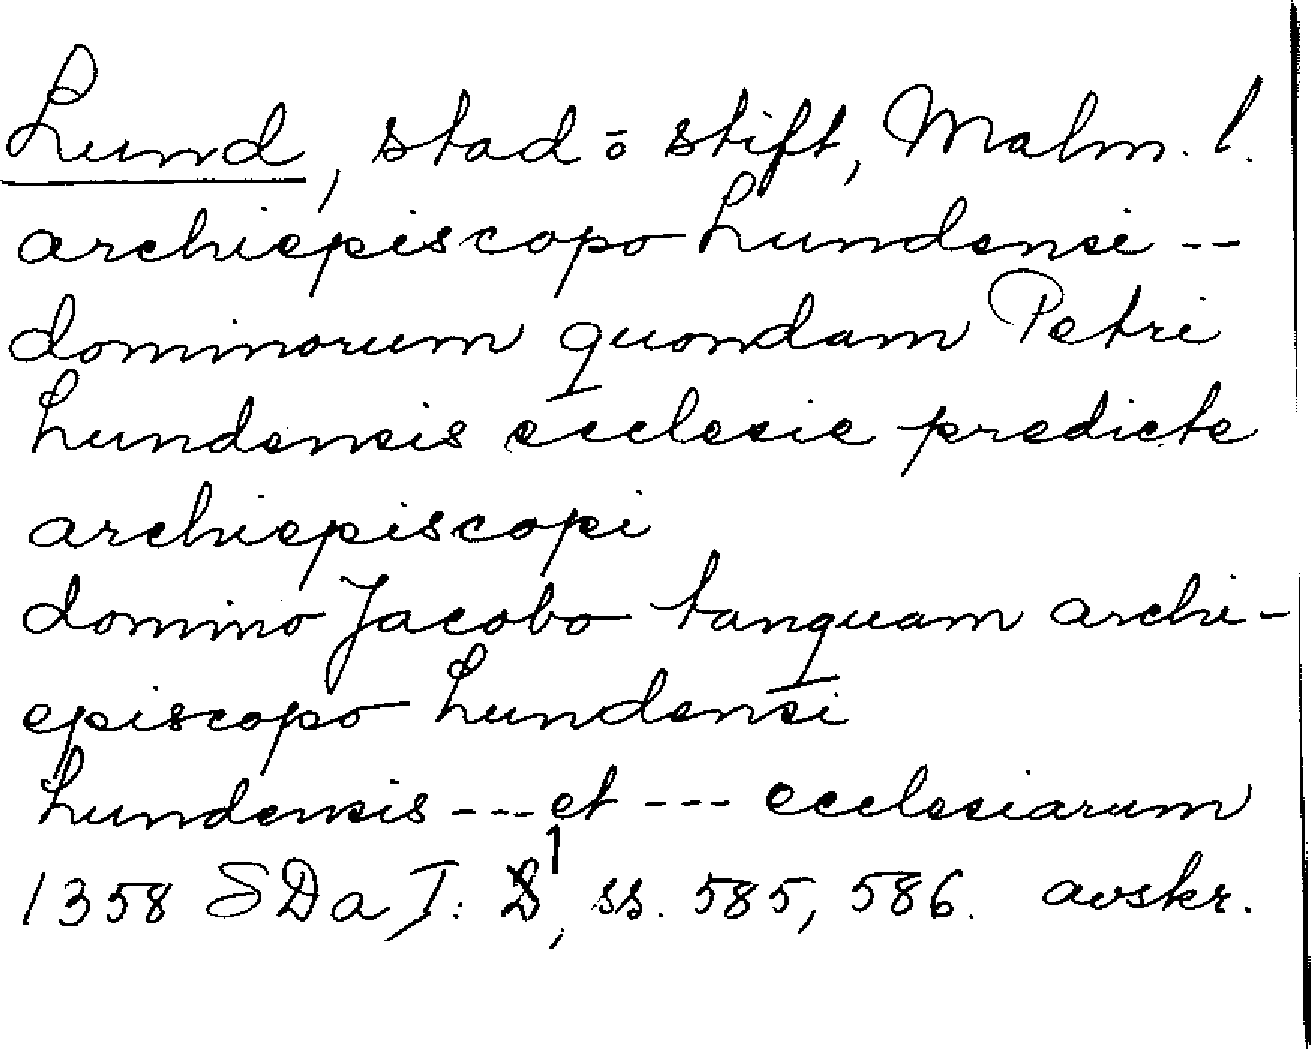 Lund, stad o stift, Malm. l.
archiepiscopo Lundensi --
dominorum quondam Petri
Lundensis ecclesie predicte
archiepiscopi
domino Jacobo tanquam archi-
episcopo Lundensi
Lundensis --- et --- ecclesiarum
1358 SDa I: 1, ss. 585, 586. avskr.